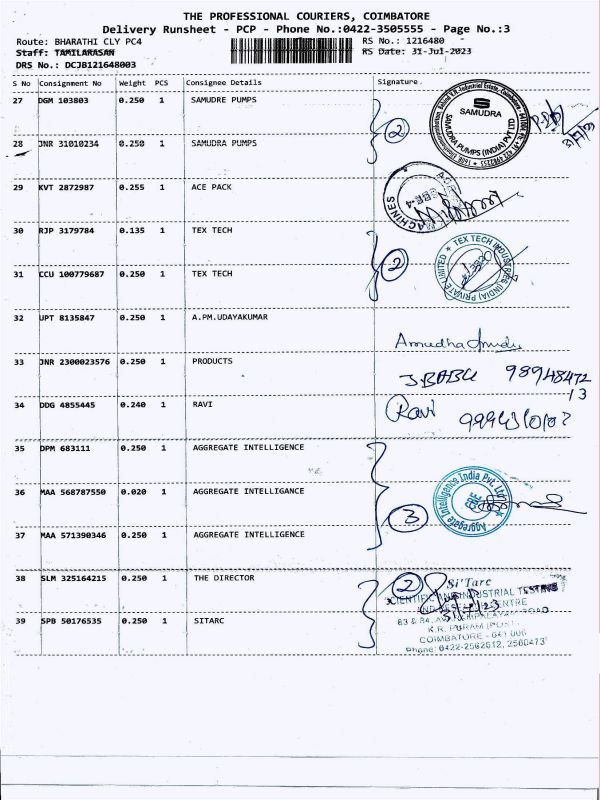 THE PROFESSIONAL COURIERS, COIMBATORE
Delivery Runsheet - PCP - Phone No.:0422-3505555 - Page No.:3
Route: BHARATHI CLY PC4 RS No.: 1216480
Staff: TAMILARASAN RS Date: 31-Jul-2023
DRS No.: DCJB121648003
S No Consignment No Weight PCS Consignee Details Signature
27 DGM 103803 0.250 1 SAMUDRE PUMPS
SAMUDRA
SAMUDRA PUMPS (INDIA) PVT LTD
2
28 JNR 31010234 0.250 1 SAMUDRA PUMPS
29 KVT 2872987 0.255 1 ACE PACK
MACHINES
30 RJP 3179784 0.135 1 TEX TECH
2
TEX TECH INDUSTRIES (INDIA) PRIVATE LIMITED
31 CCU 100779687 0.250 1 TEX TECH
32 UPT 8135847 0.250 1 A.PM.UDAYAKUMAR
Amudha
33 JNR 2300023576 0.250 1 PRODUCTS
J BABU 98948472
13
34 DDG 4855445 0.240 1 RAVI
Ravi
35 DPM 683111 0.250 1 AGGREGATE INTELLIGENCE
36 MAA 568787550 0.020 1 AGGREGATE INTELLIGANCE
Aggregate Intelligence India Pvt. Ltd
3
37 MAA 571390346 0.250 1 AGGREGATE INTELLIGENCE
38 SLM 325164215 0.250 1 THE DIRECTOR
2
Si'Tarc
SCIENTIFIC AND INDUSTRIAL TESTING
39 SPB 50176535 0.250 1 SITARC
COIMBATORE - 641 006
Phone: 0422-2562612, 2560473